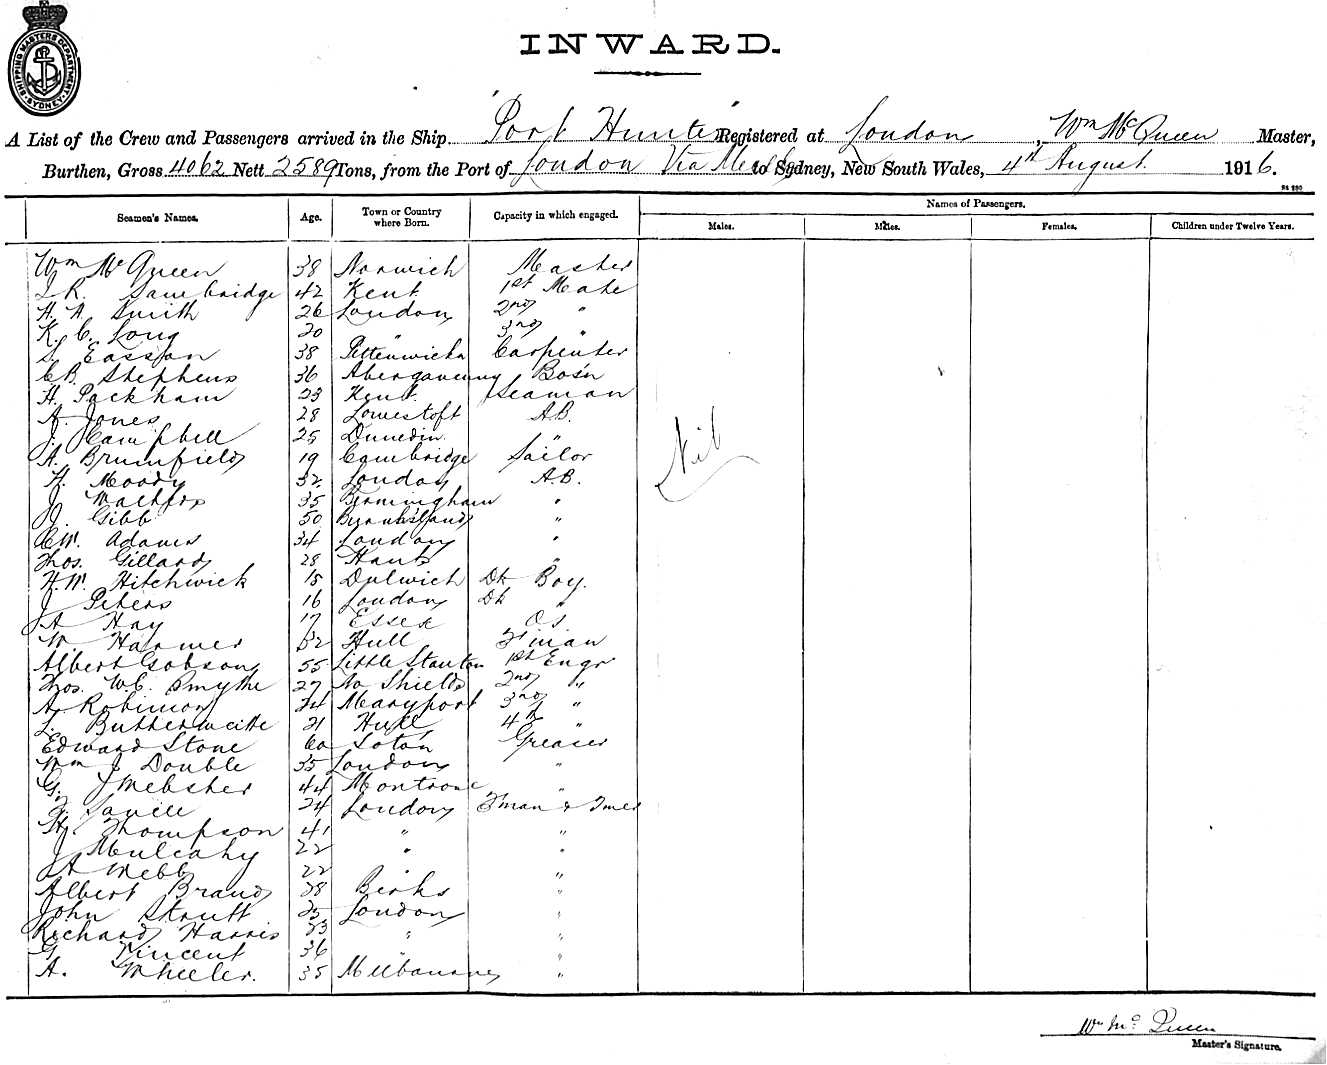 SHIPPING MASTERS DEPARTMENT SYDNEY
INWARD.
A List of the Crew and Passengers arrived in the Ship "Port Hunter" Registered at London, Wm McQueen Master,
Burthen, Gross 4062 Nett 2589 Tons, from the Port of London Via to Sydney, New South Wales, 4th August 1916.
Names of Passengers.
Seamen's Names. Age. Town or Country where Born. Capacity in which engaged. Males. Females. Children under Twelve Years.
Wm McQueen 38 Norwich Master
42 Kent 1st Mate
H. A. Smith 26 London 2nd "
K. C. Long 20 " 3rd "
S. Easson 38 Carpenter
C B. Stephens 36 Abergavenny Bos'n
H. Packham 23 Kent Seaman
A. Jones 28 Lowestoft A.B.
J. Campbell 25 Dunedin "
A. Brumfield 19 Cambridge Sailor
H. Moody 32 London A.B.
J. 35 Birmingham "
J. Gibb 50 "
C W. Adams 34 London "
Thos. Gillard 28 Hants "
H. W. Hitchwick 15 Dulwich Dk Boy.
J. Peters 16 London Dk "
A Hay 17 Essex O.S.
W. Harmer 32 Hull F'man
Albert Gobson 55 Little Stanton 1st Engr
Thos. W C. Smythe 27 No Shields 2nd "
A. Robinson 24 Maryport 3rd "
L. 21 Hull 4th "
Edward Stone 60 Soton Greaser
Wm J Double 35 London "
G. J Webster 44 Montrose "
Saville 24 London F'man & T'mer
H. Thompson 41 " "
J Mulcahy 22 " "
A Webb 22 " "
Albert Brand 28 Berks "
John Strutt 25 London "
Richard Harris 23 " "
G Vincent 36 " "
A. Wheeler. 35 Melbourne "
Nil
Wm McQueen
Master's Signature.